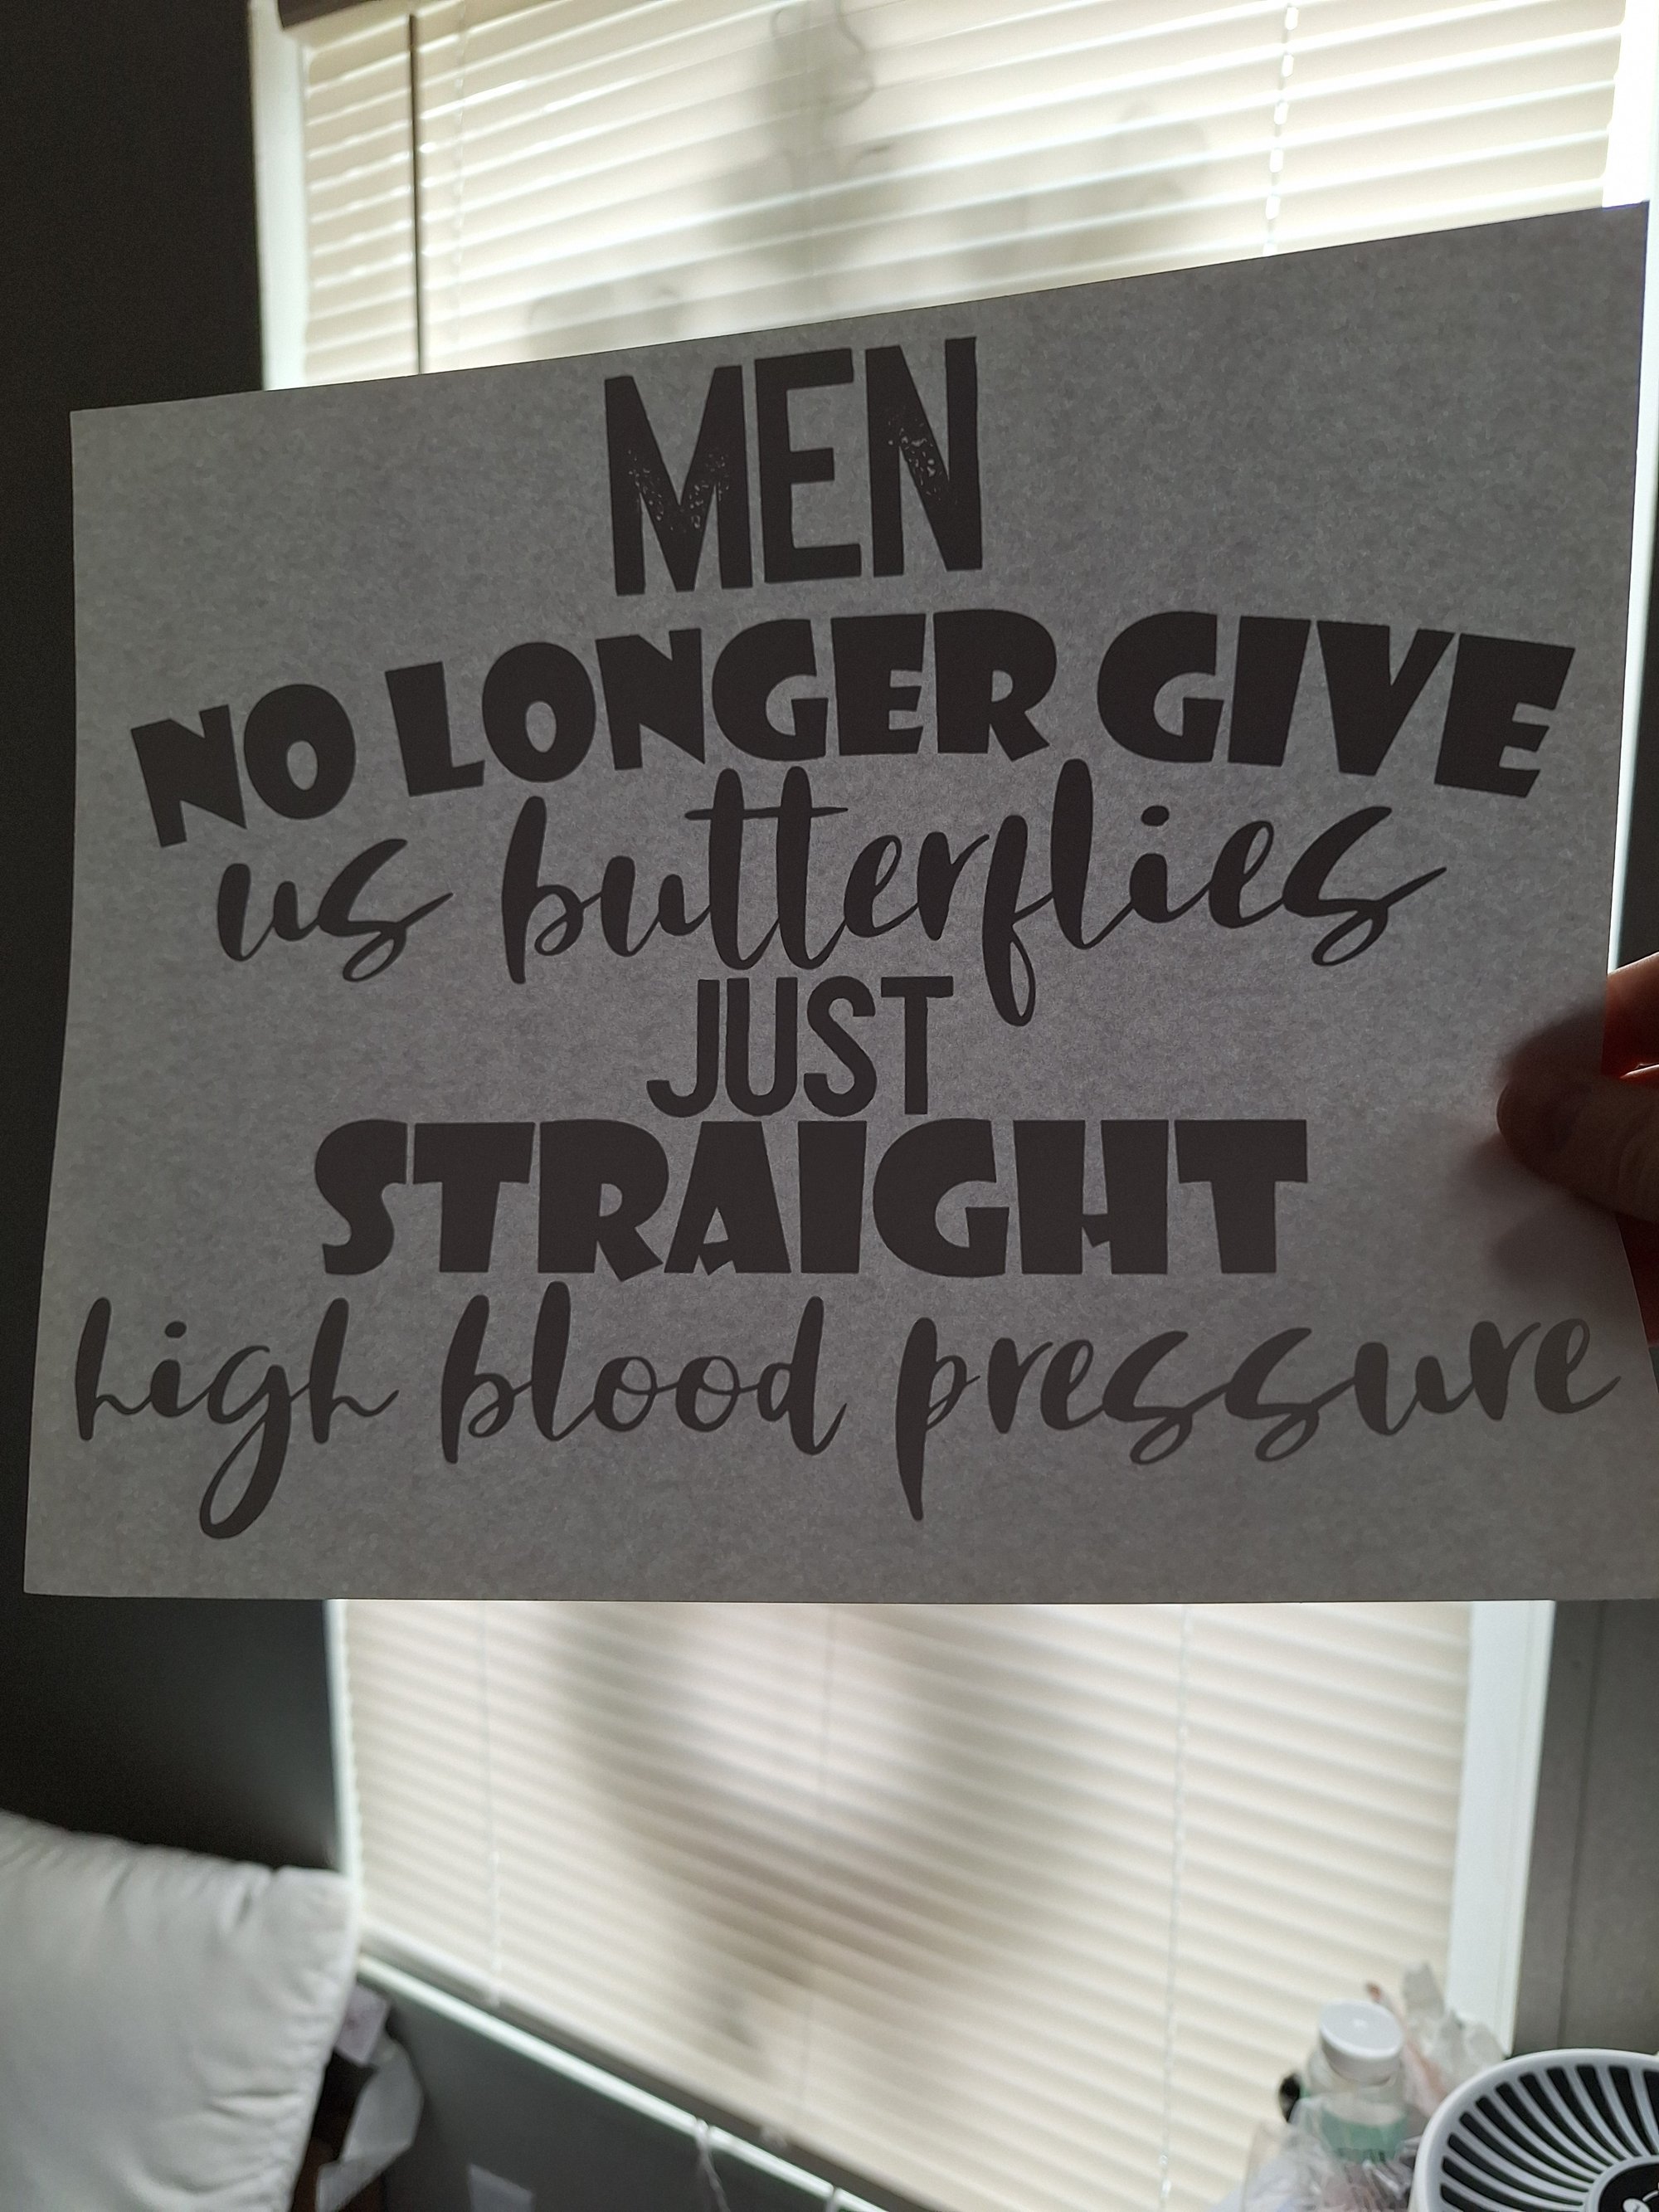 MEN
NO LONGER GIVE
us butterflies
JUST
STRAIGHT
high blood pressure